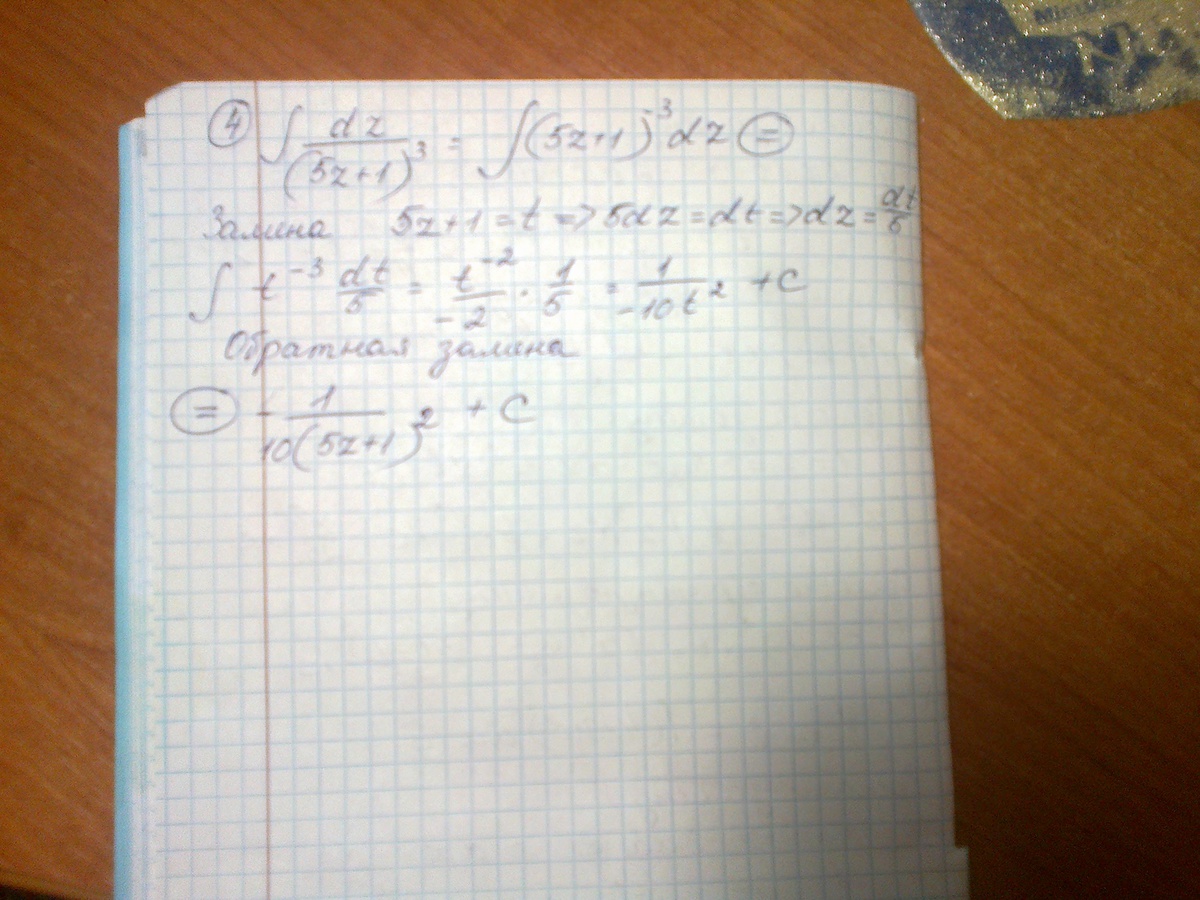 ④ ∫ dz/(5z+1)³ = ∫(5z+1)⁻³ dz ⊜
Замина 5z+1 = t => 5dz = dt => dz = dt/5
∫ t⁻³ dt/5 = t⁻²/-2 · 1/5 = 1/-10t² + C
Обратная замина
⊜ - 1/10(5z+1)² + C